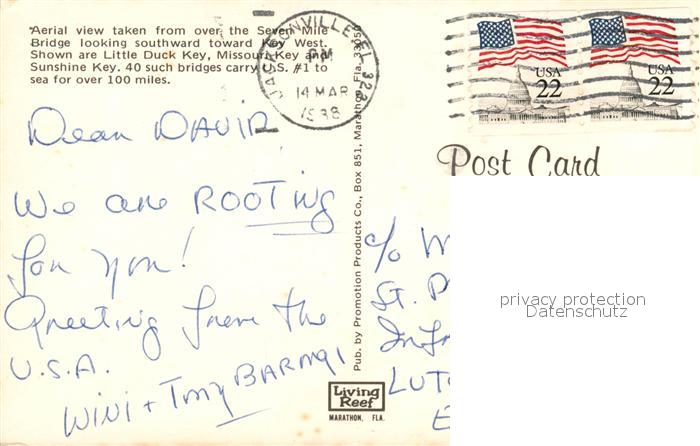 Aerial view taken from over the Seven Mile
Bridge looking southward toward Key West.
Shown are Little Duck Key, Missouri Key and
Sunshine Key. 40 such bridges carry U.S. #1 to
sea for over 100 miles.
JACKSONVILLE, FL 322
PM
14 MAR
1988
USA
22
USA
22
Post Card
Dear DAVID
We are ROOTING
for you!
Greeting from the
U.S.A.
WINI + Tony BARAGI
Pub. by Promotion Products Co., Box 851, Marathon, Fla. 33050
Living
Reef
MARATHON, FLA.
c/o
St.
LUT
E
privacy protection
Datenschutz